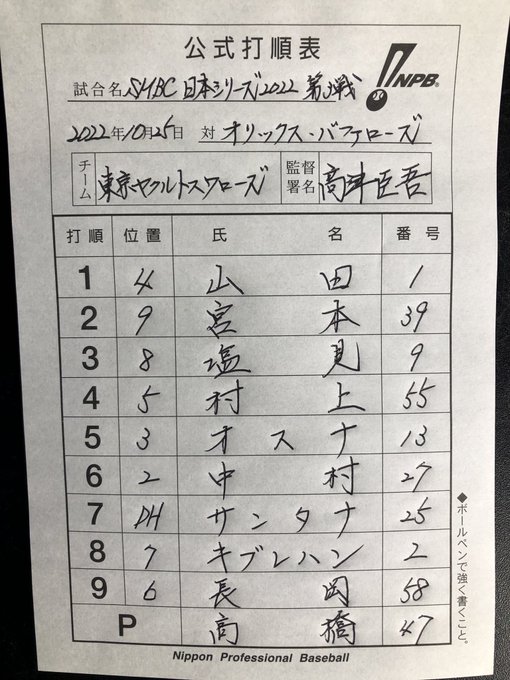 公式打順表
NPB
試合名 SMBC 日本シリーズ2022 第3戦
2022年10月25日 対 オリックス・バファローズ
チーム 東京ヤクルトスワローズ 監督署名 高津臣吾
打順 位置 氏 名 番号
1 4 山田 1
2 9 宮本 39
3 8 塩見 9
4 5 村上 55
5 3 オスナ 13
6 2 中村 27
7 DH サンタナ 25
8 7 キブレハン 2
9 6 長岡 58
P 高橋 47
◆ボールペンで強く書くこと。
Nippon Professional Baseball